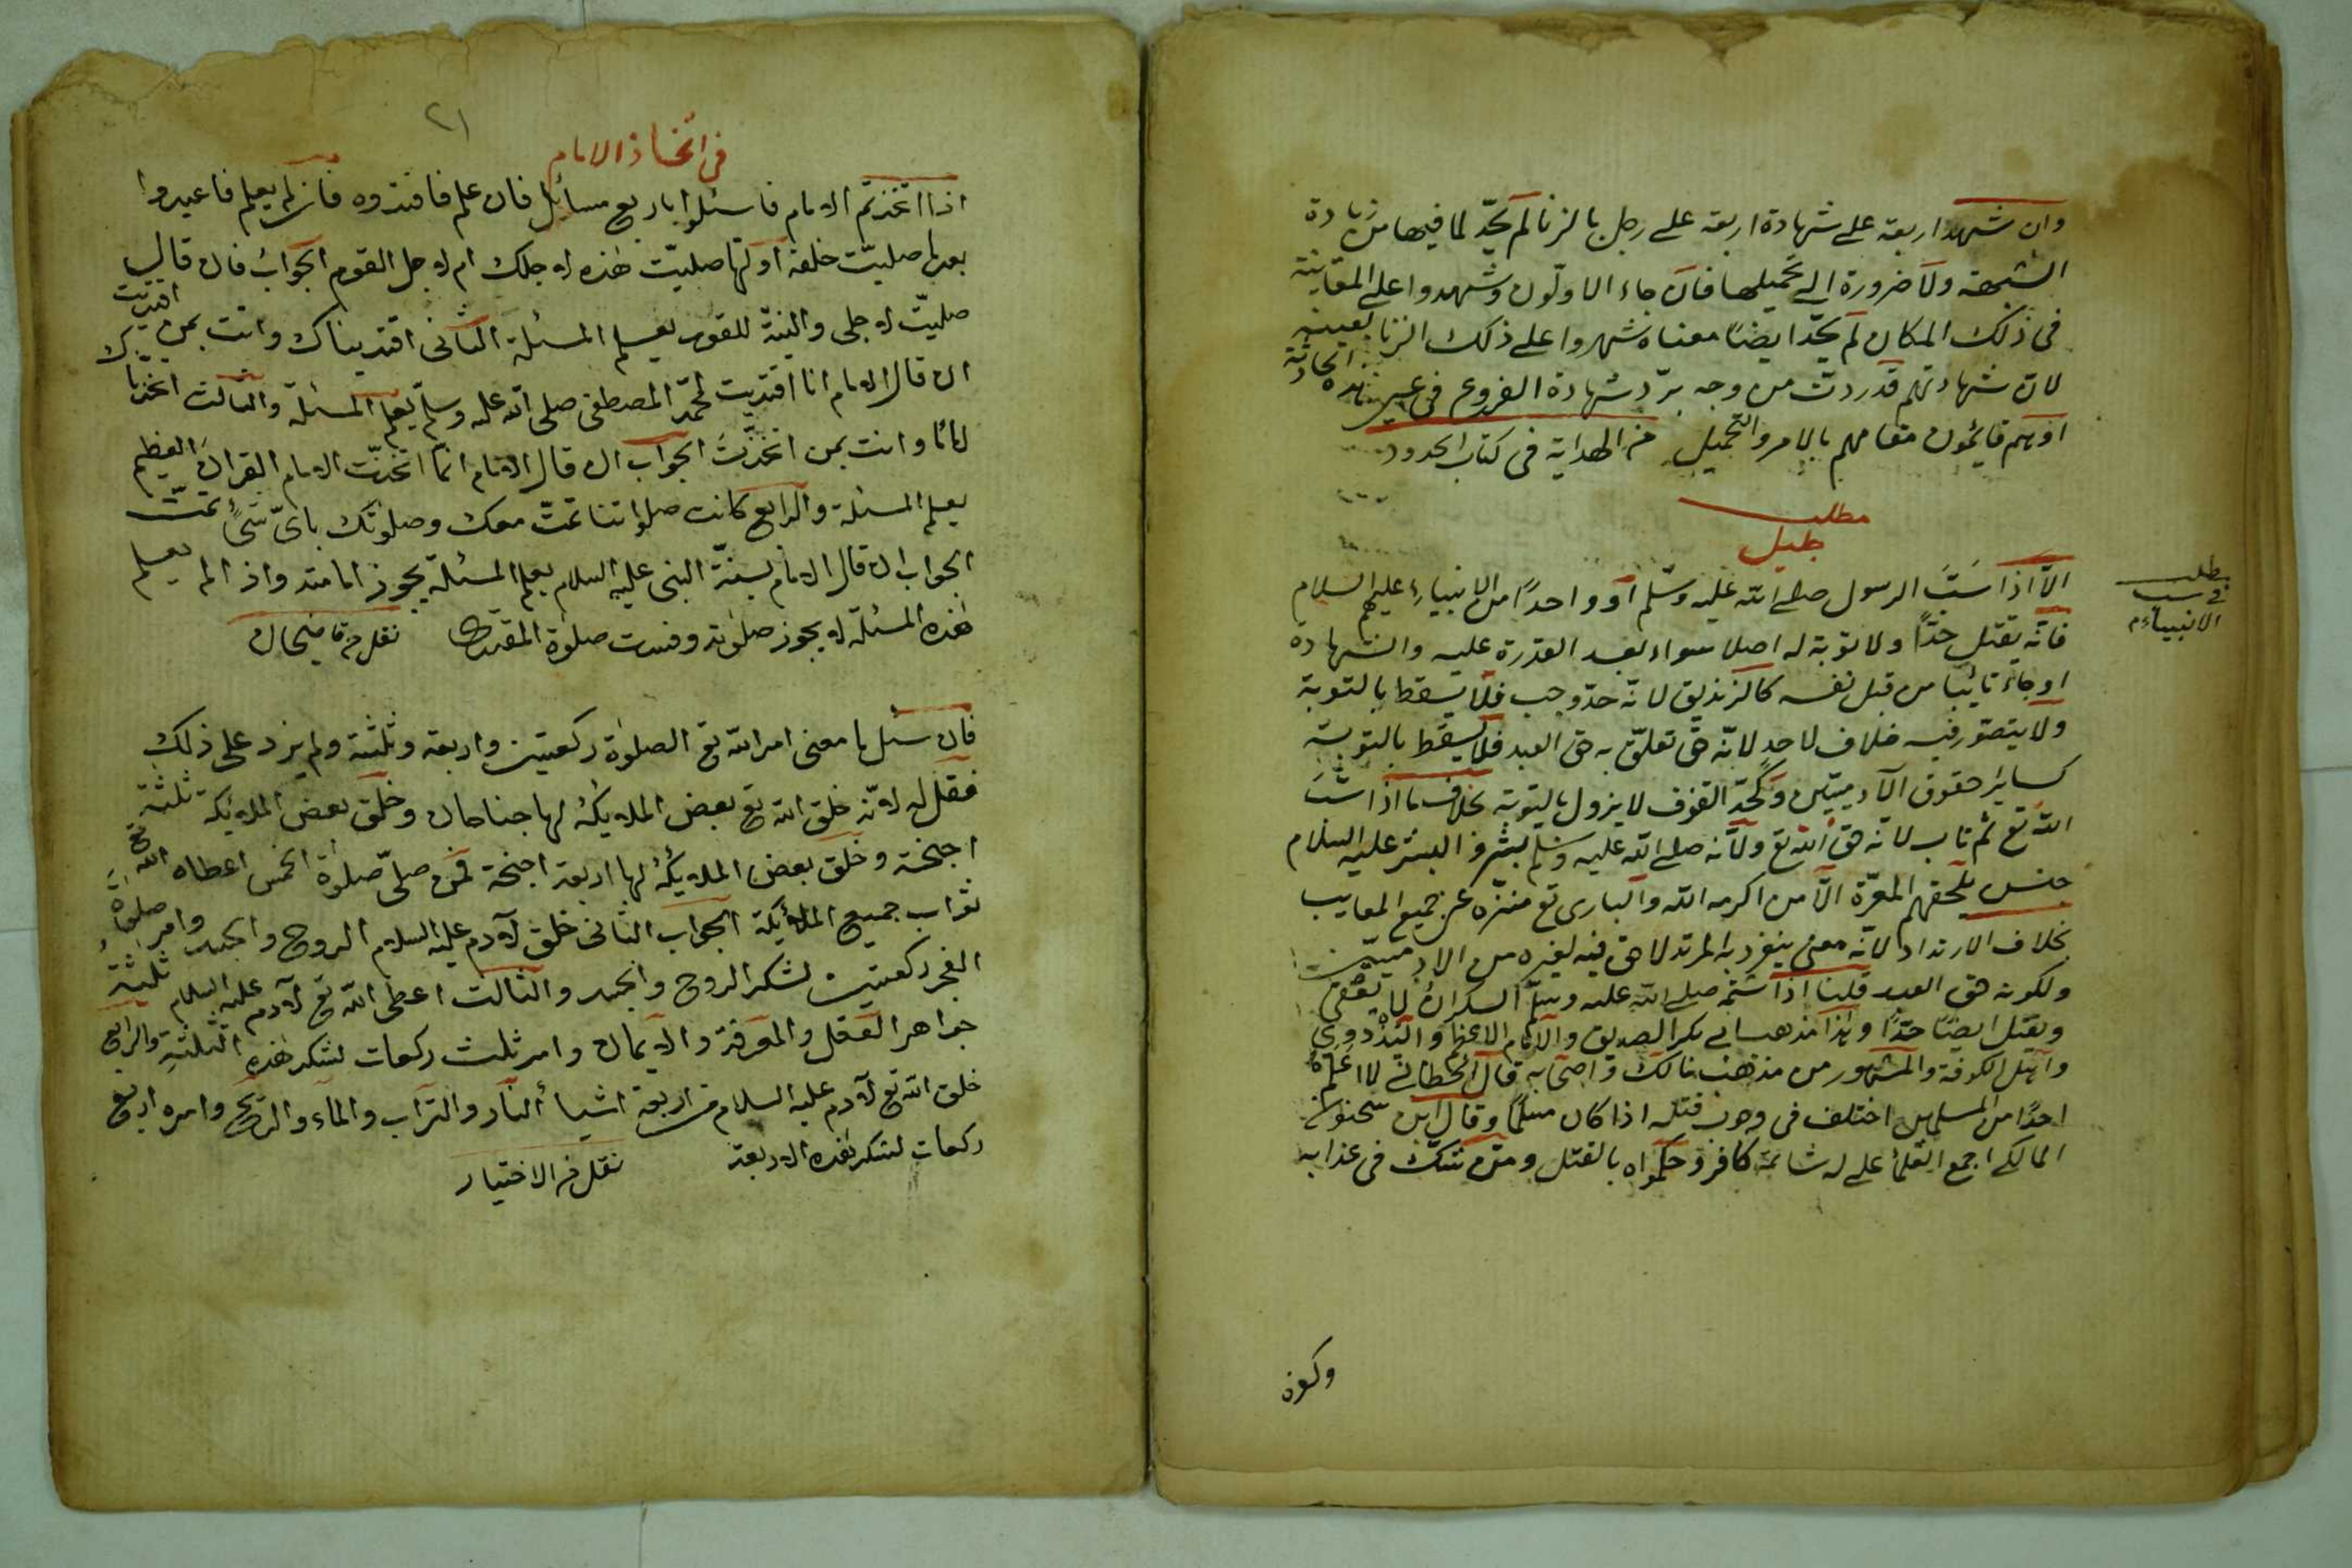 وان شهد اربعة على شهادة اربعة على رجل بالزنا لم يحدّ لما فيها من زيادة
الشبهة ولا ضرورة الى تحميلها فان جاء الاولون وشهدوا على المعاينة
فى ذلك المكان لم يحدّ ايضا معناه شهدوا على ذلك الزنا بعينه
لان شهادتهم قد ردت من وجه بردّ شهادة الفروع فى عين هذه الحادثة
اذ هم قايمون مقامهم بالامر والتحميل من الهداية فى كتاب الحدود
مطلب
جليل
مطلب
فى سب
الانبياء م
الا اذا سَبَّ الرسول صلى الله عليه وسلم او واحدًا من الانبياء عليهم السلام
فانّه يقتل حدًّا ولا توبة له اصلا سواء بعد القدرة عليه والشهادة
او جاء تائبا من قبل نفسه كالزنديق لانّه حدّ وجب فلا يسقط بالتوبة
ولا يتصوّر فيه خلاف لاحدٍ لانّه حق تعلّق به حق العبد فلا يسقط بالتوبة
كساير حقوق الآدميّين وكحدّ القذف لا يزول بالتوبة بخلاف ما اذا سَبَّ
الله تع ثم تاب لانّه حق الله تع ولانّه صلى الله عليه وسلم بشر والبشر عليه السلام
جنس يلحقهم المعرّة الّا من اكرمه الله والبارى تع منزّه عن جميع المعايب
بخلاف الارتداد لانّه معنى ينفرد به المرتد لا حق فيه لغيره من الادميّين
ولكونه حق العبد قلنا اذا شتمه صلى الله عليه وسلّم السكران لا يعفى
ويقتل ايضًا حدًّا وهذا مذهب ابى بكر الصديق والامام الاعظم والثوري
واهل الكوفة والمشهور من مذهب مالك واصحابه قال الخطابى لا اعلم
احدًا من المسلمين اختلف فى وجوب قتله اذا كان مسلمًا وقال ابن سحنون
المالكى اجمع العلماء على ان شاتمه كافر وحكموا به بالقتل ومن شكّ فى عذابه
وكفره
٢١
فى اتخاذ الامام
اذا اتخذتم الامام فاسئلوا باربع مسائل فان علم فاقتدوه فان لم يعلم فاعيدوا
بعد ما صليت خلفه اولها صليت هذه لاجلك ام لاجل القوم الجواب فان قال
صليت لاجلى والنية للقوم يعلم المسئلة الثانى اقتديناك وانت بمن اقتديت
ان قال الامام انا اقتديت لمحمد المصطفى صلى الله عليه وسلم يعلم المسئلة والثالث اتخذناك
امامًا وانت بمن اتخذت الجواب ان قال الامام انا اتخذت الامام القران العظيم
يعلم المسئلة والرابع كانت صلواتنا تمت معك وصلوتك باىّ شئ تمت
الجواب ان قال الامام بسنة النبى عليه السلام يعلم المسئلة يجوز امامته واذا لم يعلم
هذه المسئلة لا يجوز صلوته وفسدت صلوة المقتدى نقل من قاضيخان
فان سئل ما معنى امر الله تع الصلوة ركعتين واربعة وثلثة ولم يزد على ذلك
فقل له لانّه خلق الله تع بعض الملايكة لها جناحان وخلق بعض الملايكة ثلثة
اجنحة وخلق بعض الملايكة لها اربعة اجنحة فمن صلّى صلوة الخمس اعطاه الله تع
ثواب جميع الملائكة الجواب الثانى خلق لآدم عليه السلام الروح والجسد وامر صلوة
الفجر ركعتين لشكر الروح والجسد والثالث اعطى الله تع لآدم عليه السلام ثلثة
جواهر العقل والمعرفة والايمان وامر ثلث ركعات لشكر هذه الثلثة والرابع
خلق الله تع لآدم عليه السلام من اربعة اشيا النار والتراب والماء والريح وامره اربع
ركعات لشكر هذه الاربعة نقل من الاختيار